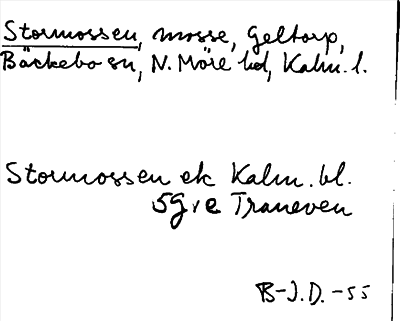 Stormossen, mosse, Geltorp,
Bäckebo sn, N. Möre hd, Kalm. l.
Stormossen ek Kalm. bl.
5G ve Traneven
B-J.D. -55